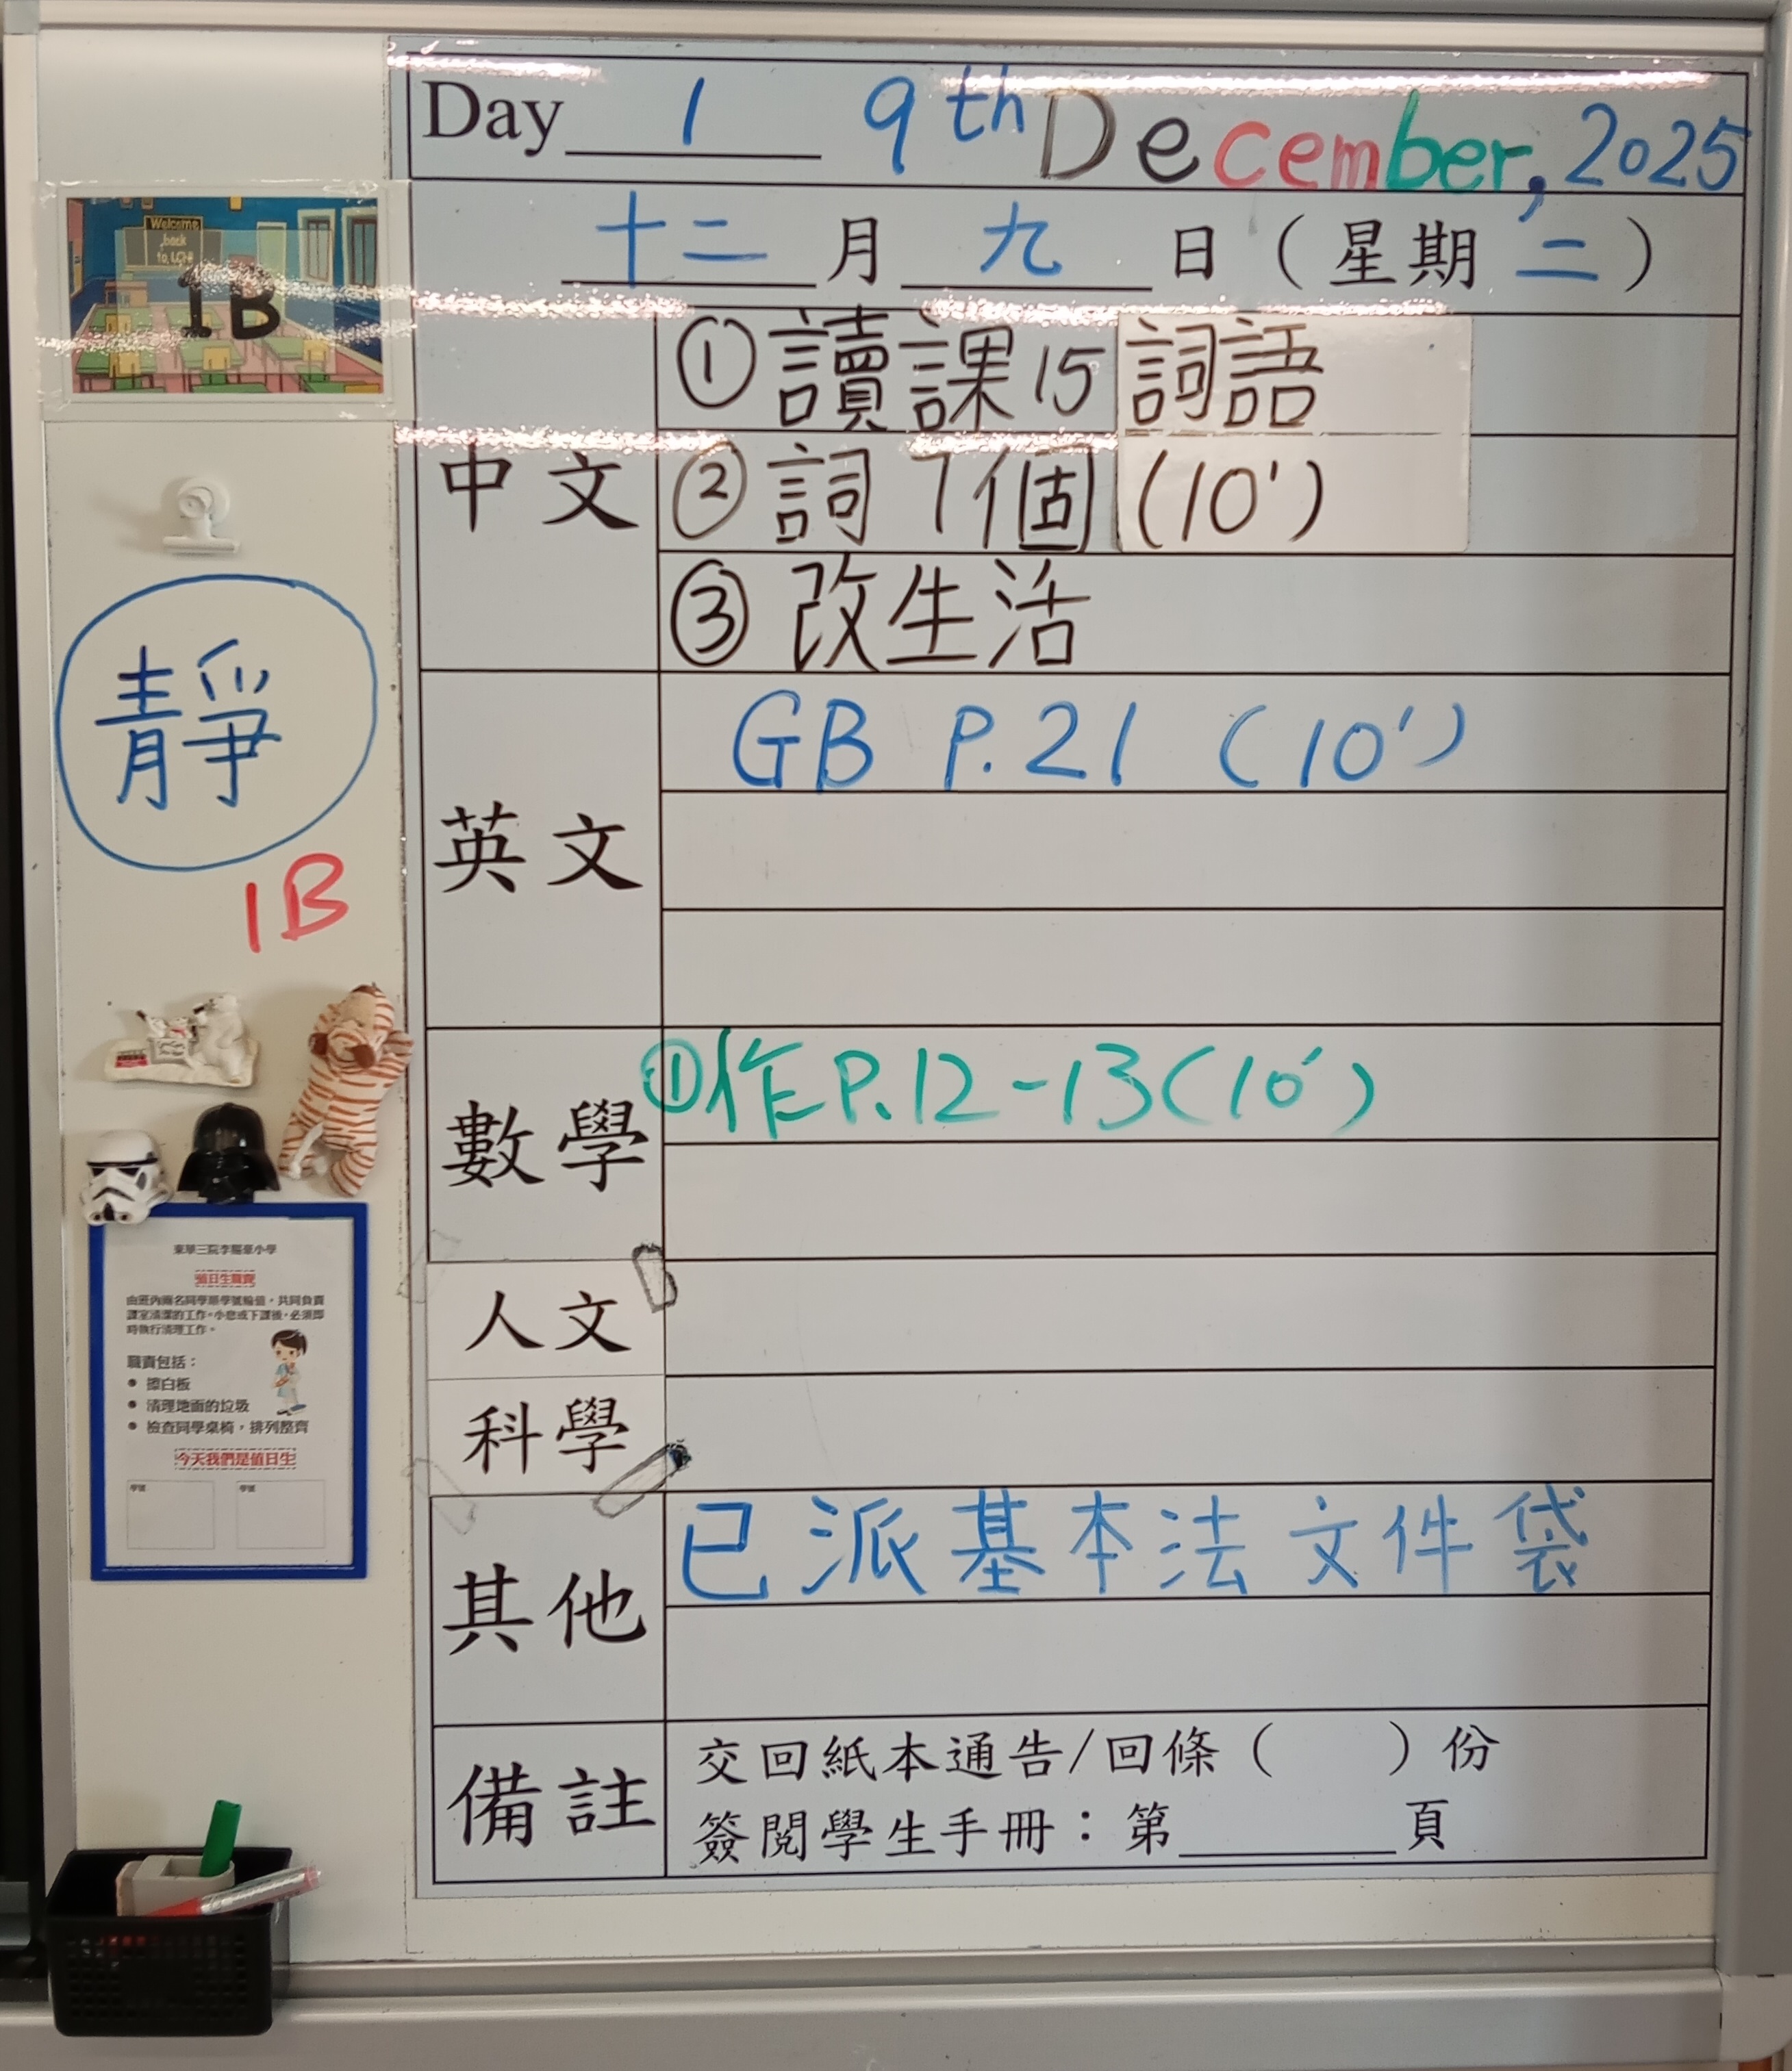 Day 1 9th December, 2025
十二 月 九 日 (星期 二)
Welcome
back
to LCH
1B
中文
① 讀課15 詞語
② 詞7個 (10')
③ 改生活
靜
1B
英文
GB P.21 (10')
數學
① 作P.12-13(10')
人文
科學
其他
已派基本法文件袋
備註
交回紙本通告/回條( )份
簽閱學生手冊:第____頁
值日生職責
由班內兩名同學順學號輪值,共同負責
課室清潔的工作。小息或下課後,必須即
時執行清理工作。
職責包括:
● 擦白板
● 清理地面的垃圾
● 檢查同學桌椅,排列整齊
今天我們是值日生
學號 學號